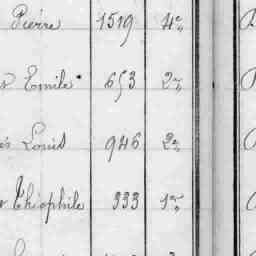 Pierre 1519 4e
Emile 653 2e
Louis 946 2e
Théophile 333 1re